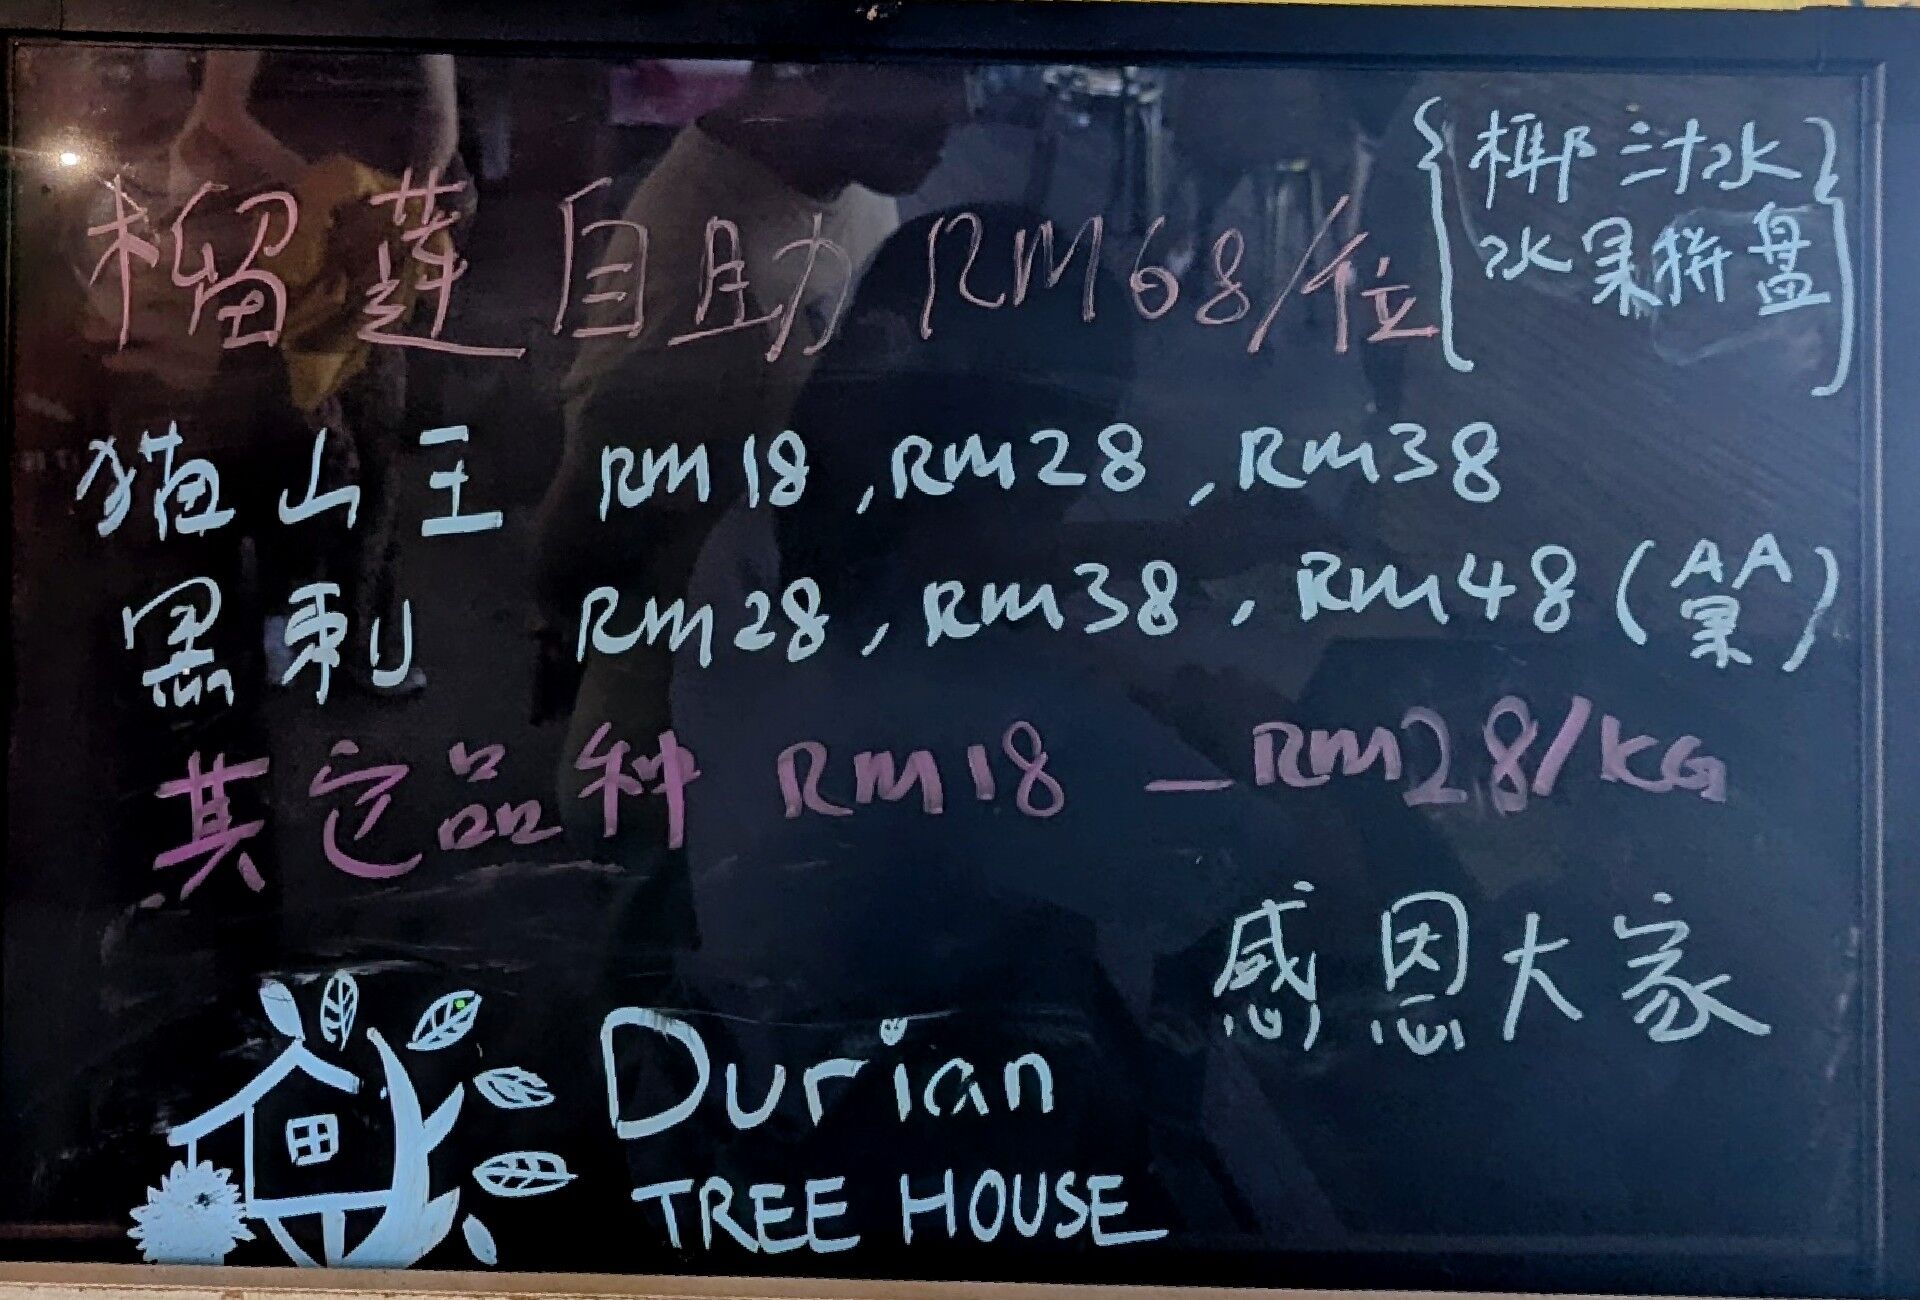 榴莲自助 RM68/位
{椰汁水
水果拼盘}
猫山王 RM18, RM28, RM38
黑刺 RM28, RM38, RM48 (AA果)
其它品种 RM18 - RM28/KG
感恩大家
Durian
TREE HOUSE